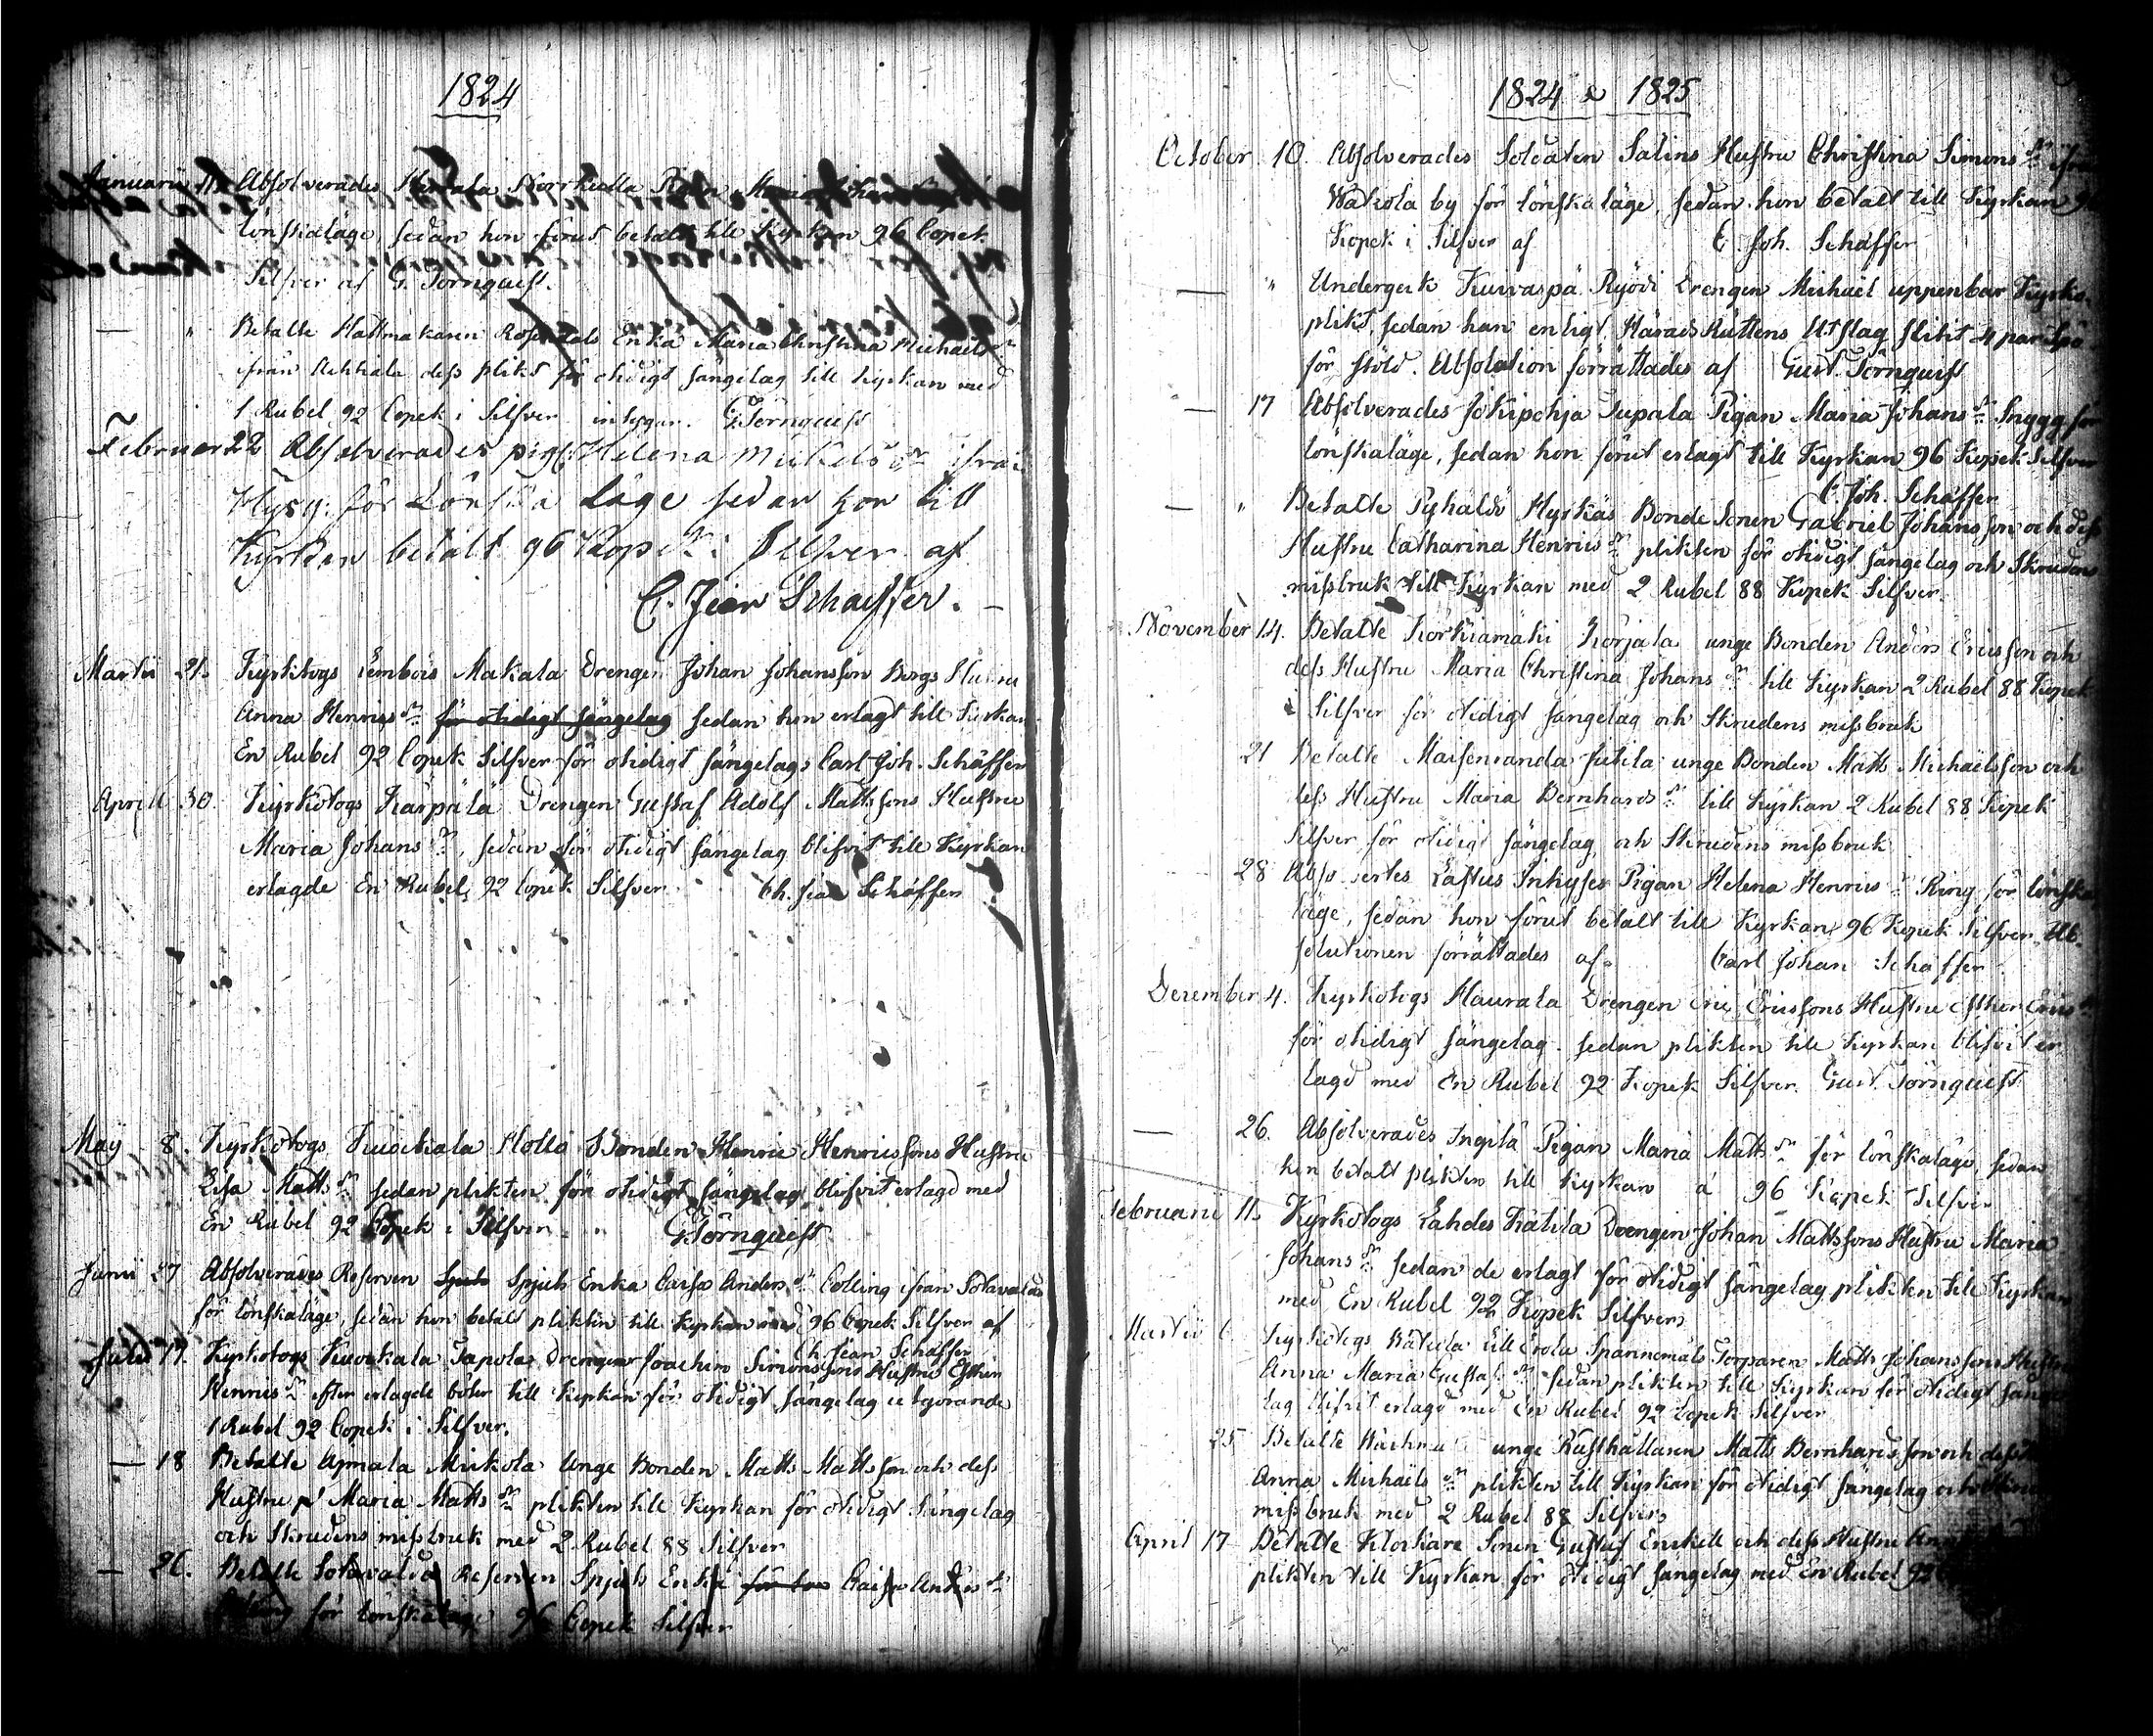 1824
Januarii 11. Absolverades Korkeala Pigan
lönskaläge, sedan hon förut betalt till Kyrkan 96 Copek
Silfver af G. Törnquist.
— " Betalte Hattmakaren Rosendals Enka Maria Christina Michaels dr
ifrån dess plikt för otidigt sängelag till Kyrkan med
1 Rubel 92 Copek i Silfver intygar. G Törnquist
Februar 22 Absolverades pig: Helena Mickels dr ifrån
för Lönska läge sedan hon till
Kyrkan betalt 96 Kopek i Silfver af
C. Jean Schaeffer. —
Martii 21. Kyrkotogs Lembois Makala Drengen Johan Johansson Bergs Hustru
Anna Henrics dr för otidigt sängelag sedan hon erlagt till Kyrkan
En Rubel 92 Copek Silfver för otidigt sängelag. Carl Joh. Schäffer
April 30. Kyrkotogs Kärpälä Drengen Gustaf Adolf Mattssons Hustru
Maria Johans dr, sedan för otidigt sängelag blifvit till Kyrkan
erlagde En Rubel 92 Copek Silfver Ch. Jean Schäffer
May 8. Kyrkotogs Kuockala Hollo Bonden Henric Henricssons Hustru
Lisa Matts dr sedan plikten för otidigt sängelag blifvit erlagd med
En Rubel 92 Copek i Silfver. G Törnquist
Junii 27 Absolverades Reserven Spjuts Enka Caisa Anders dr Colling ifrån Sotavalda
för lönskaläge, sedan hon betalt plikten till Kyrkan med 96 Copek Silfver af
Ch. Jean Schäffer
Julii 17. Kyrkotogs Kuockala Tapola Drengen Joachim Simonssons Hustru Esther
Henrics dr efter erlagde böter till Kyrkan för otidigt sängelag utgörande
1 Rubel 92 Copek i Silfver.
— 18 Betalte Apmala Mickola Unge Bonden Matts Mattsson och dess
Hustru Maria Matts dr plikten till Kyrkan för otidigt sängelag
och Skrudens missbruk med 2 Rubel 88 Silfver
— 26. Betalte Sotavalda Reserven Spjuts Enka för Caisa Anders dr
för lönskaläge 96 Copek Silfver
1824 & 1825
October 10. Absolverades Soldaten Salins Hustru Christina Simons dr ifrån
by för lönskaläge, sedan hon betalt till Kyrkan 96
Kopek i Silfver af C Joh. Schäffer
— " Undergick Kuivaspä Ryödi Drengen Michaël uppenbar Kyrko-
plikt, sedan han enligt Härads Rättens Utslag slitit 4 par
för stöld. Absolution förrättades af Gust. Törnquist
— 17 Absolverades Jokipohja Tupala Pigan Maria Johans dr Snygg för
lönskaläge, sedan hon förut erlagt till Kyrkan 96 Kopek Silfver
C Joh. Schäffer
— " Betalte Pyhaldo Hyrkäs Bonde Sonen Gabriel Johansson och dess
Hustru Catharina Henrics dr plikten för otidigt sängelag och Skrudens
missbruk till Kyrkan med 2 Rubel 88 Kopek Silfver.
November 14. Betalte Korkiamäki Korjala unge Bonden Anders Ericsson och
dess Hustru Maria Christina Johans dr till Kyrkan 2 Rubel 88 Kopek
i Silfver för otidigt sängelag och Skrudens missbruk
21 Betalte Maisenranda Jutila unge Bonden Matts Michaëlsson och
dess Hustru Maria Bernhards dr till Kyrkan 2 Rubel 88 Kopek
Silfver för otidigt sängelag och Skrudens missbruk
28 Laftus Inkyses Pigan Helena Henrics dr Ring för lönska
läge, sedan hon förut betalt till Kyrkan 96 Kopek Silfver, Ab-
solutionen förrättades af. Carl Johan Schäffer
December 4. Kyrkotogs Haurala Drengen Eric Ericssons Hustru Esther Erics dr
för otidigt sängelag. sedan plikten till Kyrkan blifvit er
lagd med En Rubel 92 Kopek Silfver. Gust. Törnquist
— 26. Absolverades Ingilä Pigan Maria Matts dr för lönskaläge, sedan
hon betalt plikten till Kyrkan a 96 Kopek Silfver
Februarii 11. Kyrkotogs Lahdes Kätila Drengen Johan Mattssons Hustru Maria
Johans dr sedan de erlagt för otidigt sängelag plikten till Kyrkan
med En Rubel 92 Kopek Silfver.
Martii 6 Kyrkotogs Torparen Matts Johanssons Hustru
Anna Maria Gustafs dr sedan plikten till Kyrkan för otidigt sänge
lag blifvit erlagd med En Rubel 92 Copek Silfver
25 Betalte unge Rusthållaren Matts Bernhardsson och dess
Anna Michaëls dr plikten till Kyrkan för otidigt sängelag och
missbruk med 2 Rubel 88 Silfver.
April 17 Betalte Klockare Sonen Gustaf Enskell och dess Hustru
plikten till Kyrkan för otidigt sängelag med En Rubel 92